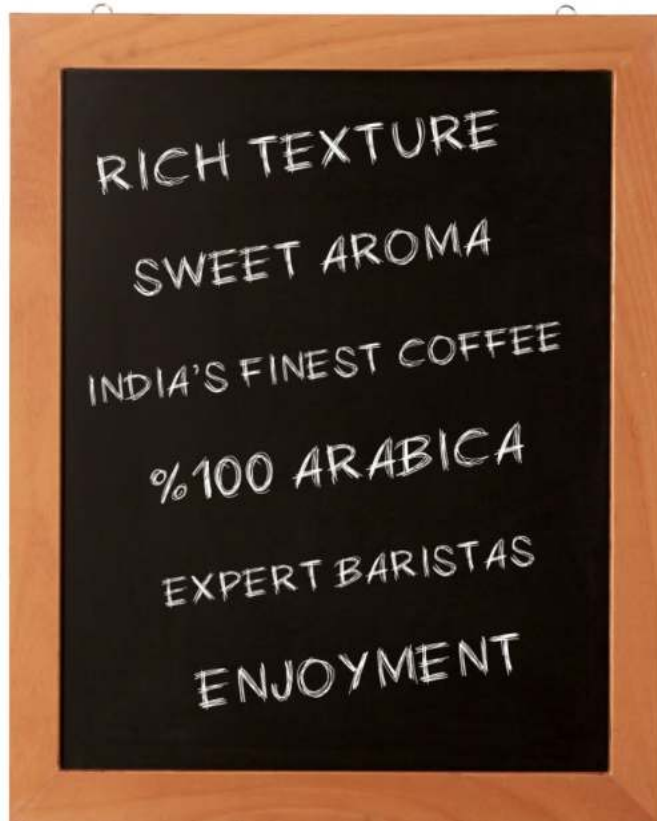 RICH TEXTURE
SWEET AROMA
INDIA'S FINEST COFFEE
%100 ARABICA
EXPERT BARISTAS
ENJOYMENT